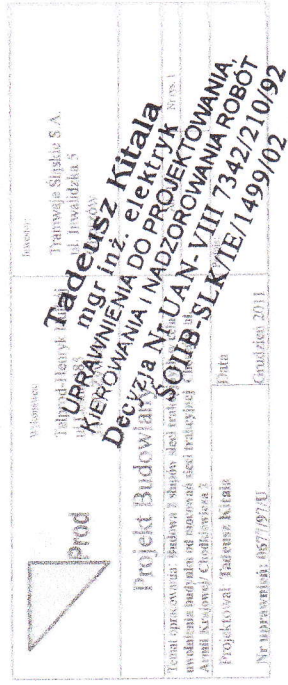 prod
Wykonawca:
Talprod-Henryk
Inwestor:
Tramwaje Śląskie S.A.
ul. Inwalidzka 5
Projekt Budowlany
Nr rys. 1
Temat opracowania: Budowa 2 słupów sieci trakcyjnej
uwolnienia budynku od mocowań sieci trakcyjnej
Armii Krajowej/ Chodkiewicza 3
Projektował: Tadeusz Kitala
Data
Nr uprawnień: 0677/97/U
Grudzień 2011
Tadeusz Kitala
mgr inż. elektryk
UPRAWNIENIA DO PROJEKTOWANIA,
KIEROWANIA I NADZOROWANIA ROBÓT
Decyzja Nr UAN- VIII 7342/210/92
ŚOIIB-SLK/IE/1499/02